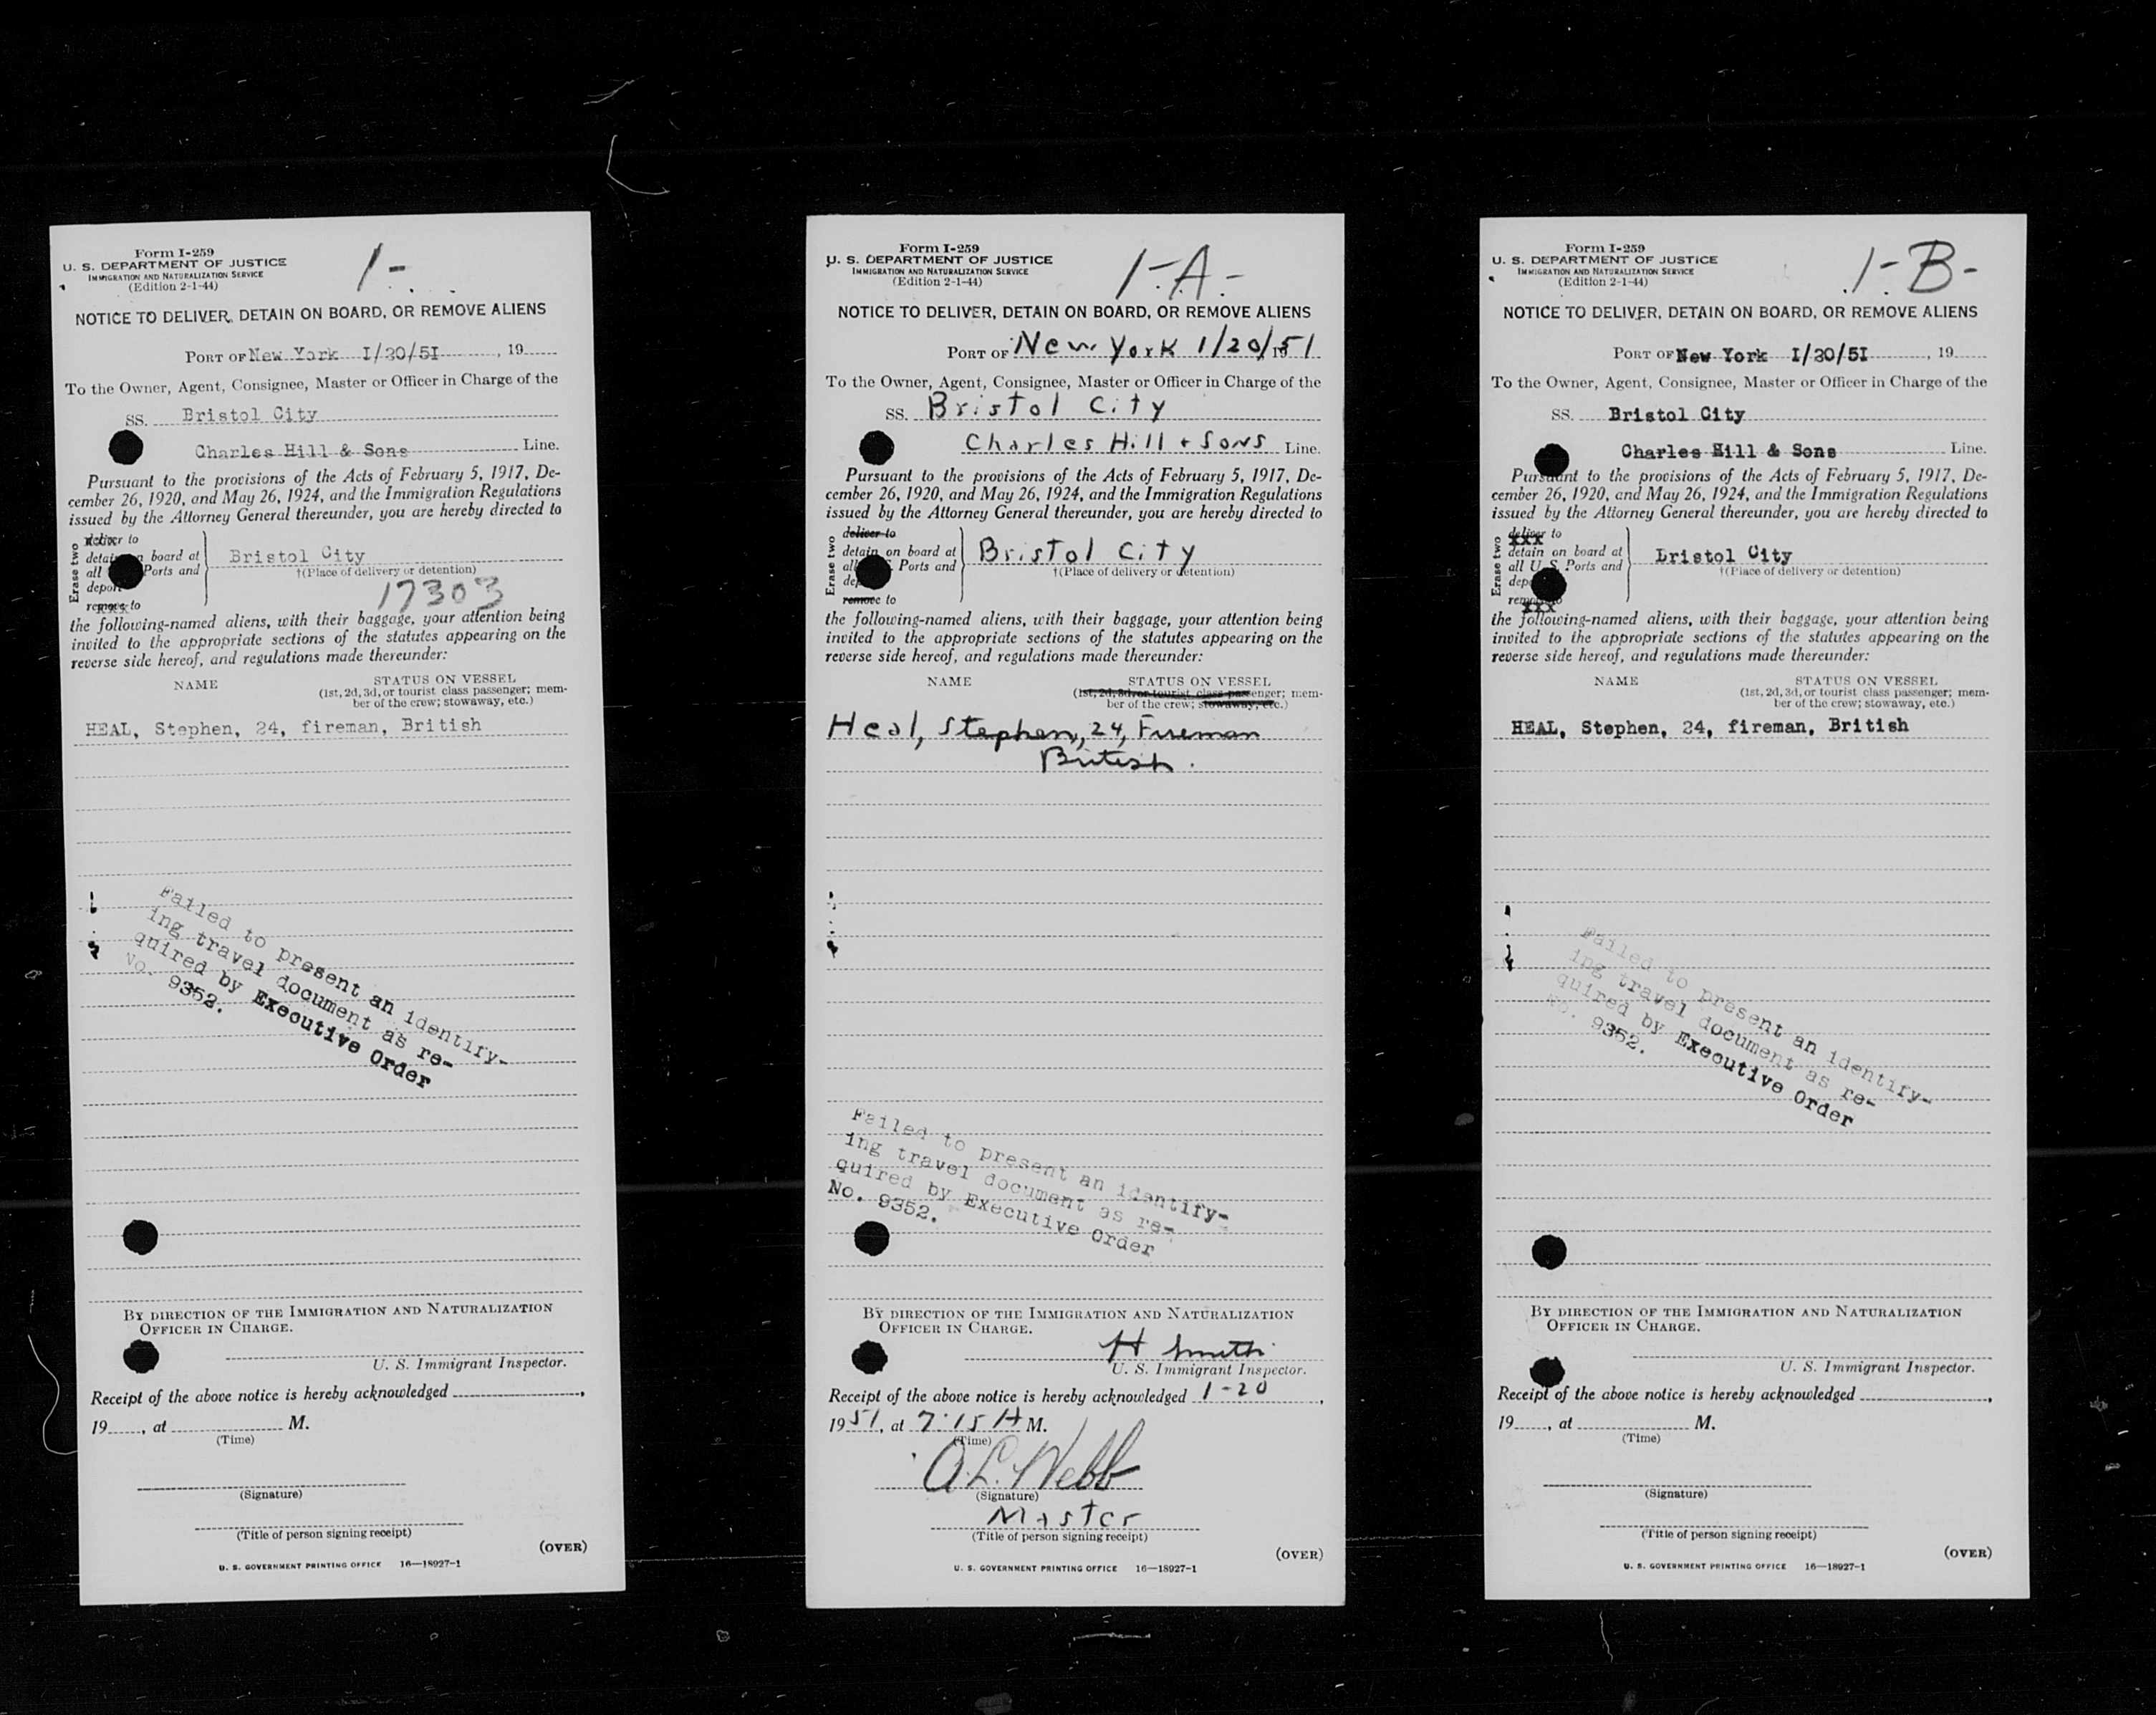 Form I-259
U. S. DEPARTMENT OF JUSTICE
IMMIGRATION AND NATURALIZATION SERVICE
(Edition 2-1-44)
1-
NOTICE TO DELIVER, DETAIN ON BOARD, OR REMOVE ALIENS
PORT OF New York I/20/5I, 19
To the Owner, Agent, Consignee, Master or Officer in Charge of the
SS. Bristol City
Charles Hill & Sons Line.
Pursuant to the provisions of the Acts of February 5, 1917, De-
cember 26, 1920, and May 26, 1924, and the Immigration Regulations
issued by the Attorney General thereunder, you are hereby directed to
Erase two
deliver to
detain on board at
all Ports and
deport
remove to
Bristol City
†(Place of delivery or detention)
17303
the following-named aliens, with their baggage, your attention being
invited to the appropriate sections of the statutes appearing on the
reverse side hereof, and regulations made thereunder:
NAME
STATUS ON VESSEL
(1st, 2d, 3d, or tourist class passenger; mem-
ber of the crew; stowaway, etc.)
HEAL, Stephen, 24, fireman, British
Failed to present an identify-
ing travel document as re-
quired by Executive Order
No. 9352.
BY DIRECTION OF THE IMMIGRATION AND NATURALIZATION
OFFICER IN CHARGE.
U. S. Immigrant Inspector.
Receipt of the above notice is hereby acknowledged ,
19 , at M.
(Time)
(Signature)
(Title of person signing receipt)
(OVER)
U. S. GOVERNMENT PRINTING OFFICE 16—18927-1
Form I-259
U. S. DEPARTMENT OF JUSTICE
IMMIGRATION AND NATURALIZATION SERVICE
(Edition 2-1-44)
1-A-
NOTICE TO DELIVER, DETAIN ON BOARD, OR REMOVE ALIENS
PORT OF New York 1/20/1951
To the Owner, Agent, Consignee, Master or Officer in Charge of the
SS. Bristol City
Charles Hill + Sons Line.
Pursuant to the provisions of the Acts of February 5, 1917, De-
cember 26, 1920, and May 26, 1924, and the Immigration Regulations
issued by the Attorney General thereunder, you are hereby directed to
Erase two
deliver to
detain on board at
all Ports and
remove to
Bristol City
†(Place of delivery or detention)
the following-named aliens, with their baggage, your attention being
invited to the appropriate sections of the statutes appearing on the
reverse side hereof, and regulations made thereunder:
NAME
STATUS ON VESSEL
(1st, 2d, 3d, or tourist class passenger; mem-
ber of the crew; stowaway, etc.)
Heal, Stephen, 24, Fireman
British.
Failed to present an identify-
ing travel document as re-
quired by Executive Order
No. 9352.
BY DIRECTION OF THE IMMIGRATION AND NATURALIZATION
OFFICER IN CHARGE.
H Smith
U. S. Immigrant Inspector.
Receipt of the above notice is hereby acknowledged 1-20,
1951, at 7:15 A M.
(Time)
A.L. Webb
(Signature)
Master
(Title of person signing receipt)
(OVER)
U. S. GOVERNMENT PRINTING OFFICE 16—18927-1
Form I-259
U. S. DEPARTMENT OF JUSTICE
IMMIGRATION AND NATURALIZATION SERVICE
(Edition 2-1-44)
1-B-
NOTICE TO DELIVER, DETAIN ON BOARD, OR REMOVE ALIENS
PORT OF New York I/20/5I, 19
To the Owner, Agent, Consignee, Master or Officer in Charge of the
SS. Bristol City
Charles Hill & Sons Line.
Pursuant to the provisions of the Acts of February 5, 1917, De-
cember 26, 1920, and May 26, 1924, and the Immigration Regulations
issued by the Attorney General thereunder, you are hereby directed to
Erase two
deliver to
detain on board at
all U. S. Ports and
remove to
Bristol City
†(Place of delivery or detention)
the following-named aliens, with their baggage, your attention being
invited to the appropriate sections of the statutes appearing on the
reverse side hereof, and regulations made thereunder:
NAME
STATUS ON VESSEL
(1st, 2d, 3d, or tourist class passenger; mem-
ber of the crew; stowaway, etc.)
HEAL, Stephen, 24, fireman, British
Failed to present an identify-
ing travel document as re-
quired by Executive Order
No. 9352.
BY DIRECTION OF THE IMMIGRATION AND NATURALIZATION
OFFICER IN CHARGE.
U. S. Immigrant Inspector.
Receipt of the above notice is hereby acknowledged ,
19 , at M.
(Time)
(Signature)
(Title of person signing receipt)
(OVER)
U. S. GOVERNMENT PRINTING OFFICE 16—18927-1